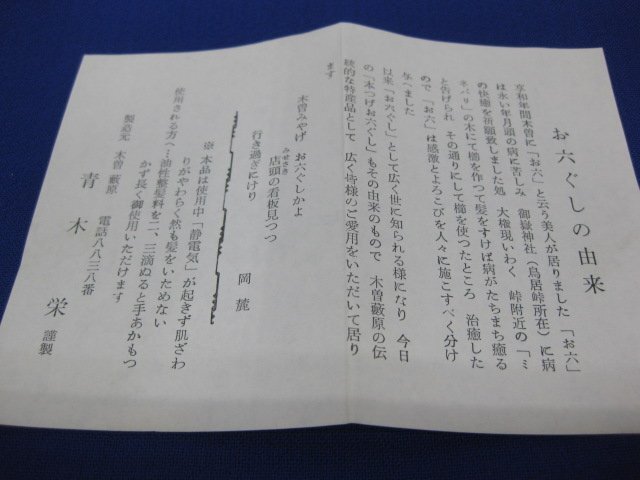 お六ぐしの由来
享和年間木曽に「お六」と云う美人が居りました 「お六」
は永い年月頭の病に苦しみ 御嶽神社(鳥居峠所在)に病
の快癒を祈願致しました処 大権現いわく 峠附近の「ミ
ネバリ」の木にて櫛を作つて髪をすけば病がたちまち癒る
と告げられ その通りにして櫛を使つたところ 治癒した
ので「お六」は感激とよろこびを人々に施こすべく分け
与へました
以来「お六ぐし」として広く世に知られる様になり 今日
の「本つげお六ぐし」もその由来のもので 木曽藪原の伝
統的な特産品として 広く皆様のご愛用をいただいて居り
ます
木曽みやげ お六ぐしかよ
みせさき
店頭の看板見つつ
行き過ぎにけり
岡 麓
※ 本品は使用中「静電気」が起きず肌ざわ
りがやわらく然も髪をいためない
使用される方へ…油性整髪料を二、三滴ぬると手あかもつ
かず長く御使用いただけます
製造元 木曽 藪原 電話八八三八番
青木 栄 謹製